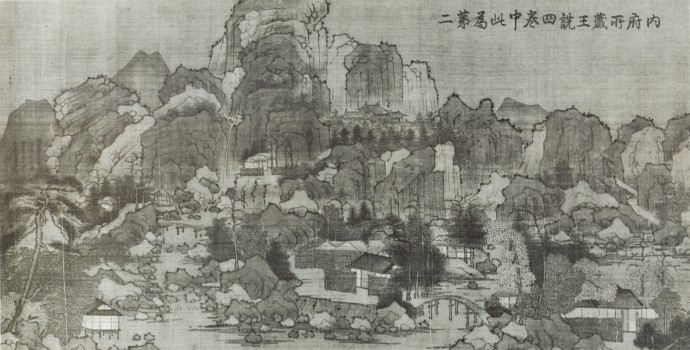 內府所藏王詵四卷中此爲第二